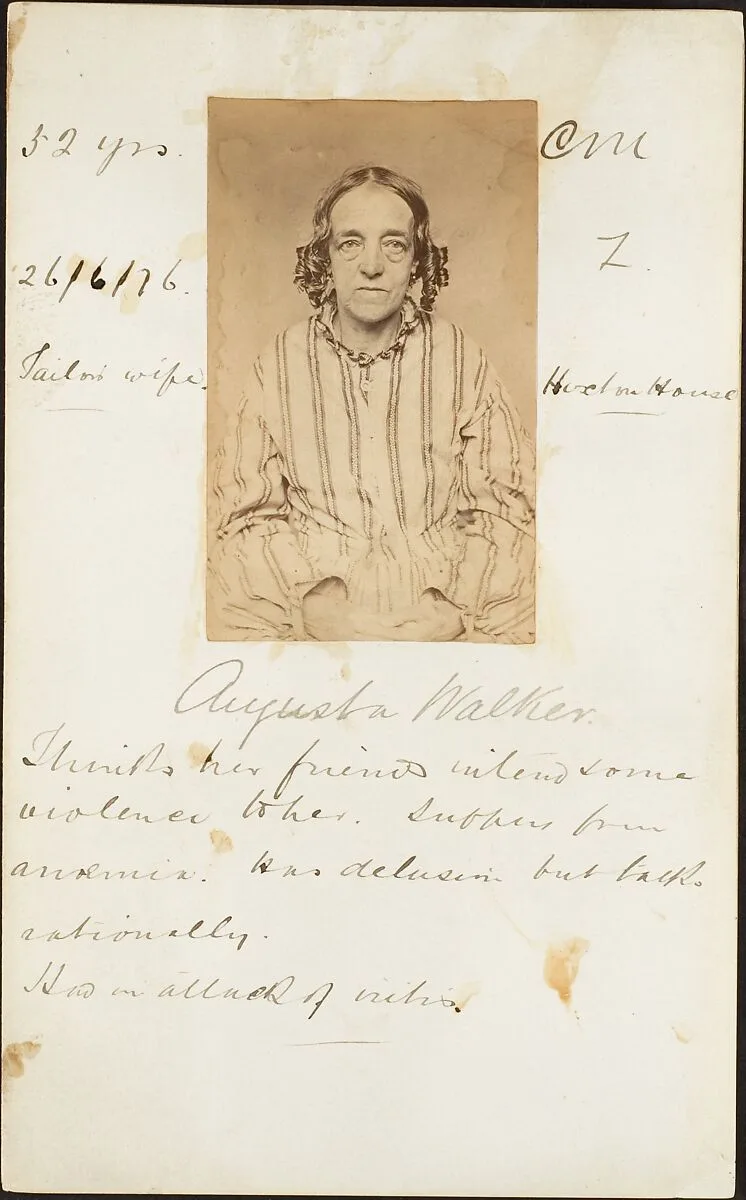 52 yrs.
CM
26/6/76.
Z.
Tailors wife.
Hoxton House
Augusta Walker.
Thinks her friends intend some
violence to her. Suffers from
anæmia. Has delusion but talks
rationally.
Had an attack of iritis.